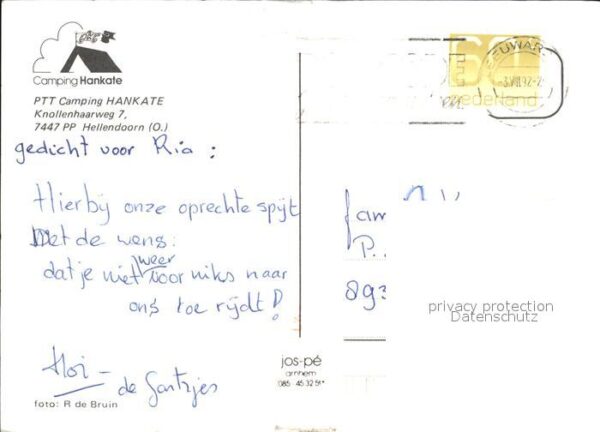 Camping Hankate
PTT Camping HANKATE
Knollenhaarweg 7,
7447 PP Hellendoorn (O.)
gedicht voor Ria :
Hierbij onze oprechte spijt
Met de wens:
dat je niet weer voor niks naar
ons toe rijdt!
Hoi -
de Santjes
foto: R de Bruin
jos-pé
arnhem
085 45 32 51*
60
nederland
EUWAR
-3.VIII.92-2
fam
P.
893
privacy protection
Datenschutz